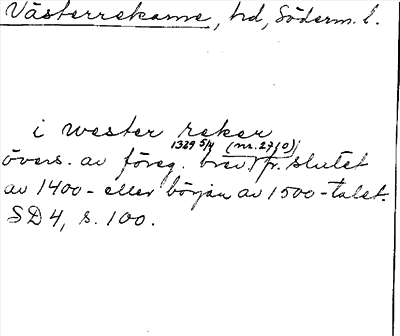 Västerrekarne, hd, Söderm. l.
i wester reker
1329 5/4 (nr. 2710)
övers. av föreg. brev, fr. slutet
av 1400- eller början av 1500-talet.
SD 4, s. 100.